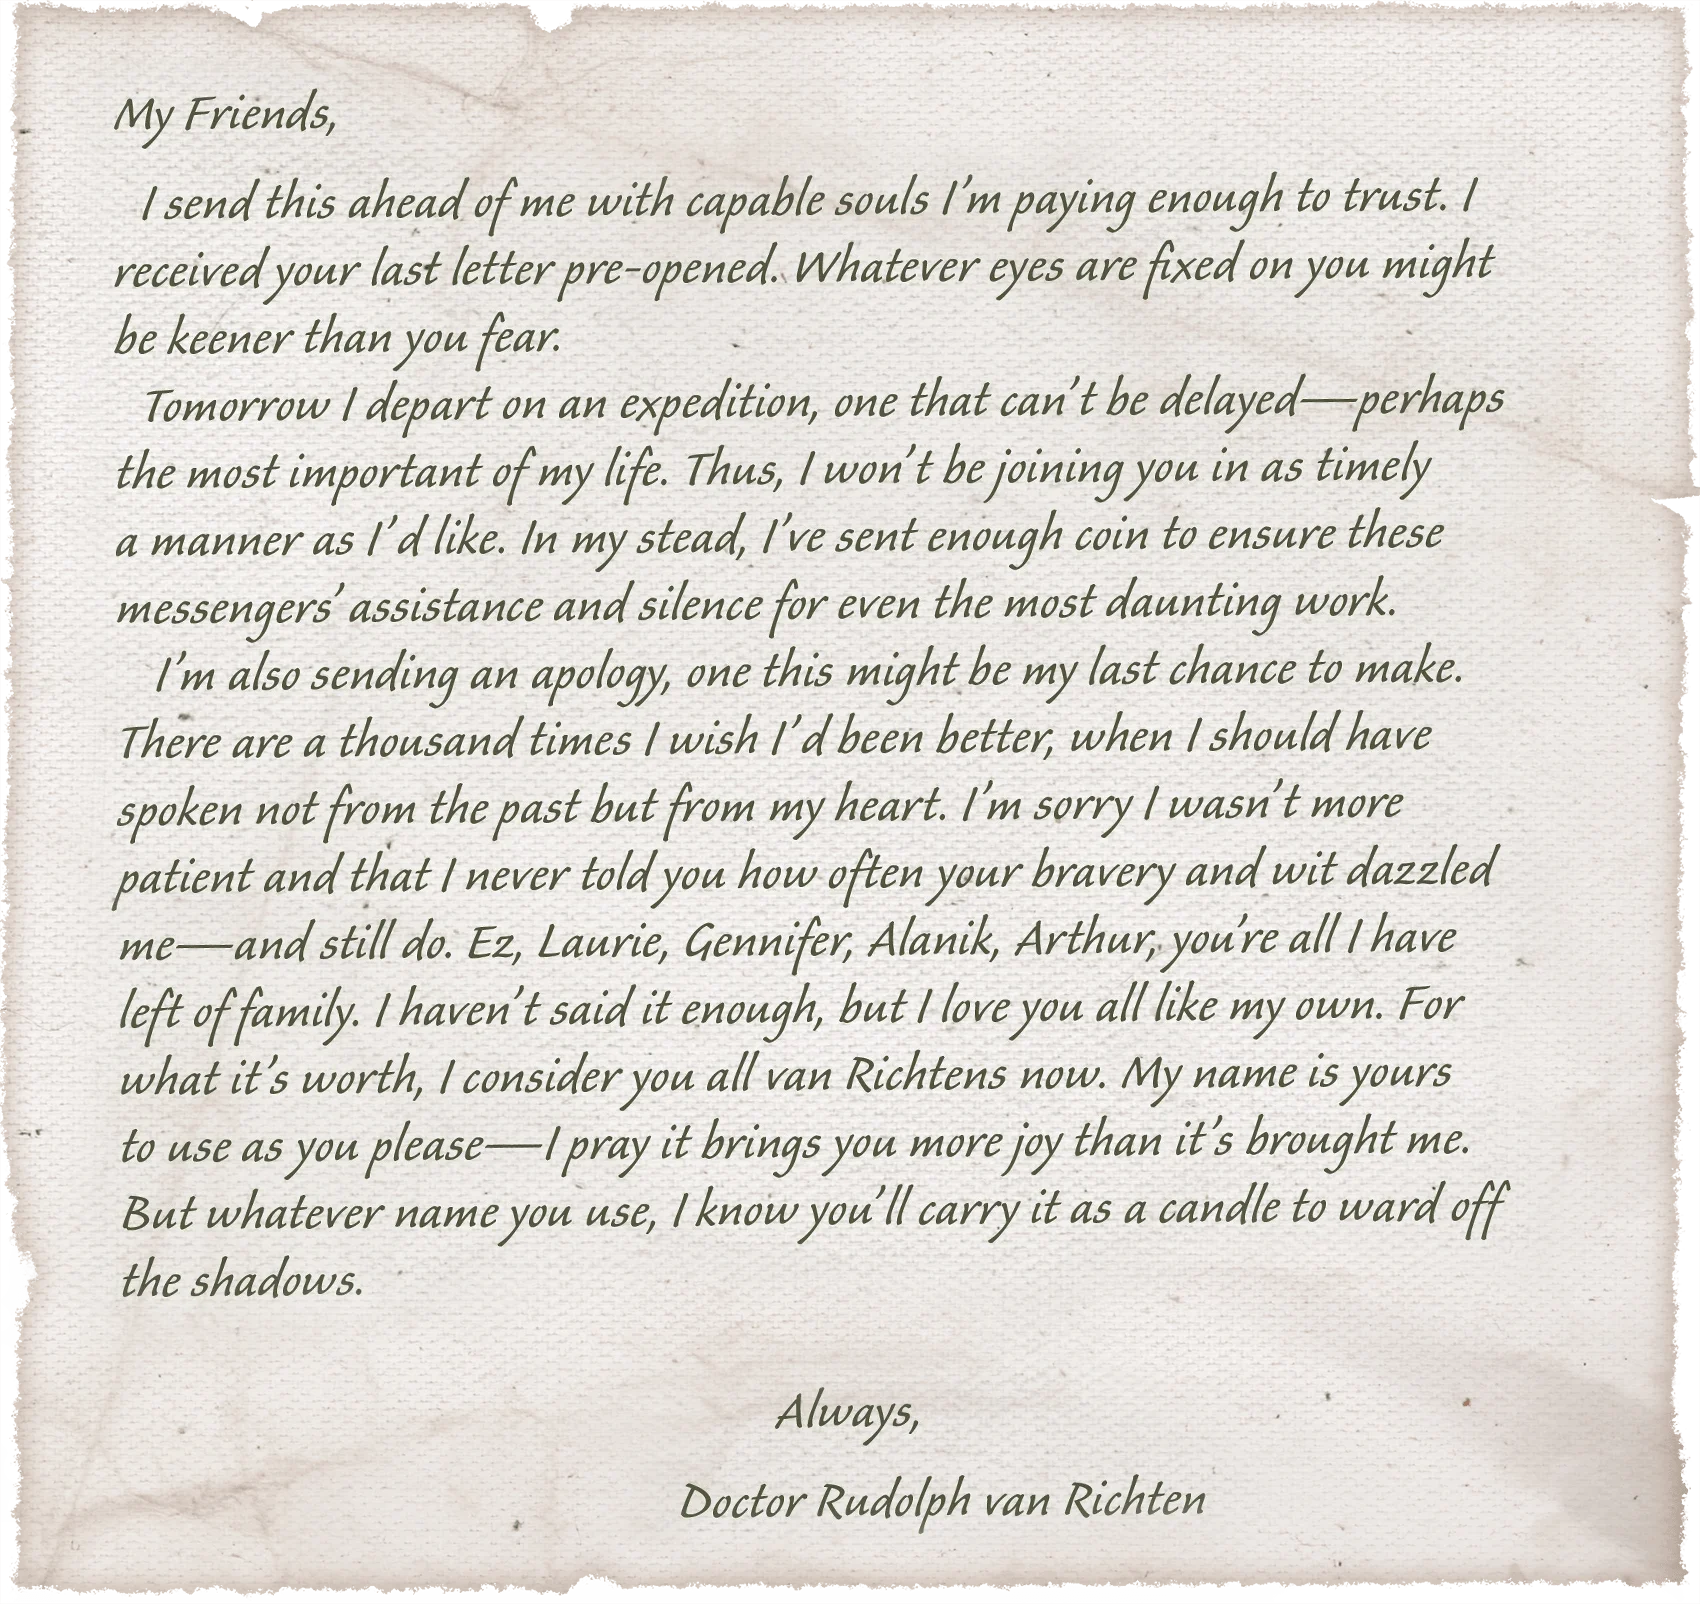 My Friends,
I send this ahead of me with capable souls I'm paying enough to trust. I
received your last letter pre-opened. Whatever eyes are fixed on you might
be keener than you fear.
Tomorrow I depart on an expedition, one that can't be delayed—perhaps
the most important of my life. Thus, I won't be joining you in as timely
a manner as I'd like. In my stead, I've sent enough coin to ensure these
messengers' assistance and silence for even the most daunting work.
I'm also sending an apology, one this might be my last chance to make.
There are a thousand times I wish I'd been better, when I should have
spoken not from the past but from my heart. I'm sorry I wasn't more
patient and that I never told you how often your bravery and wit dazzled
me—and still do. Ez, Laurie, Gennifer, Alanik, Arthur, you're all I have
left of family. I haven't said it enough, but I love you all like my own. For
what it's worth, I consider you all van Richtens now. My name is yours
to use as you please—I pray it brings you more joy than it's brought me.
But whatever name you use, I know you'll carry it as a candle to ward off
the shadows.
Always,
Doctor Rudolph van Richten